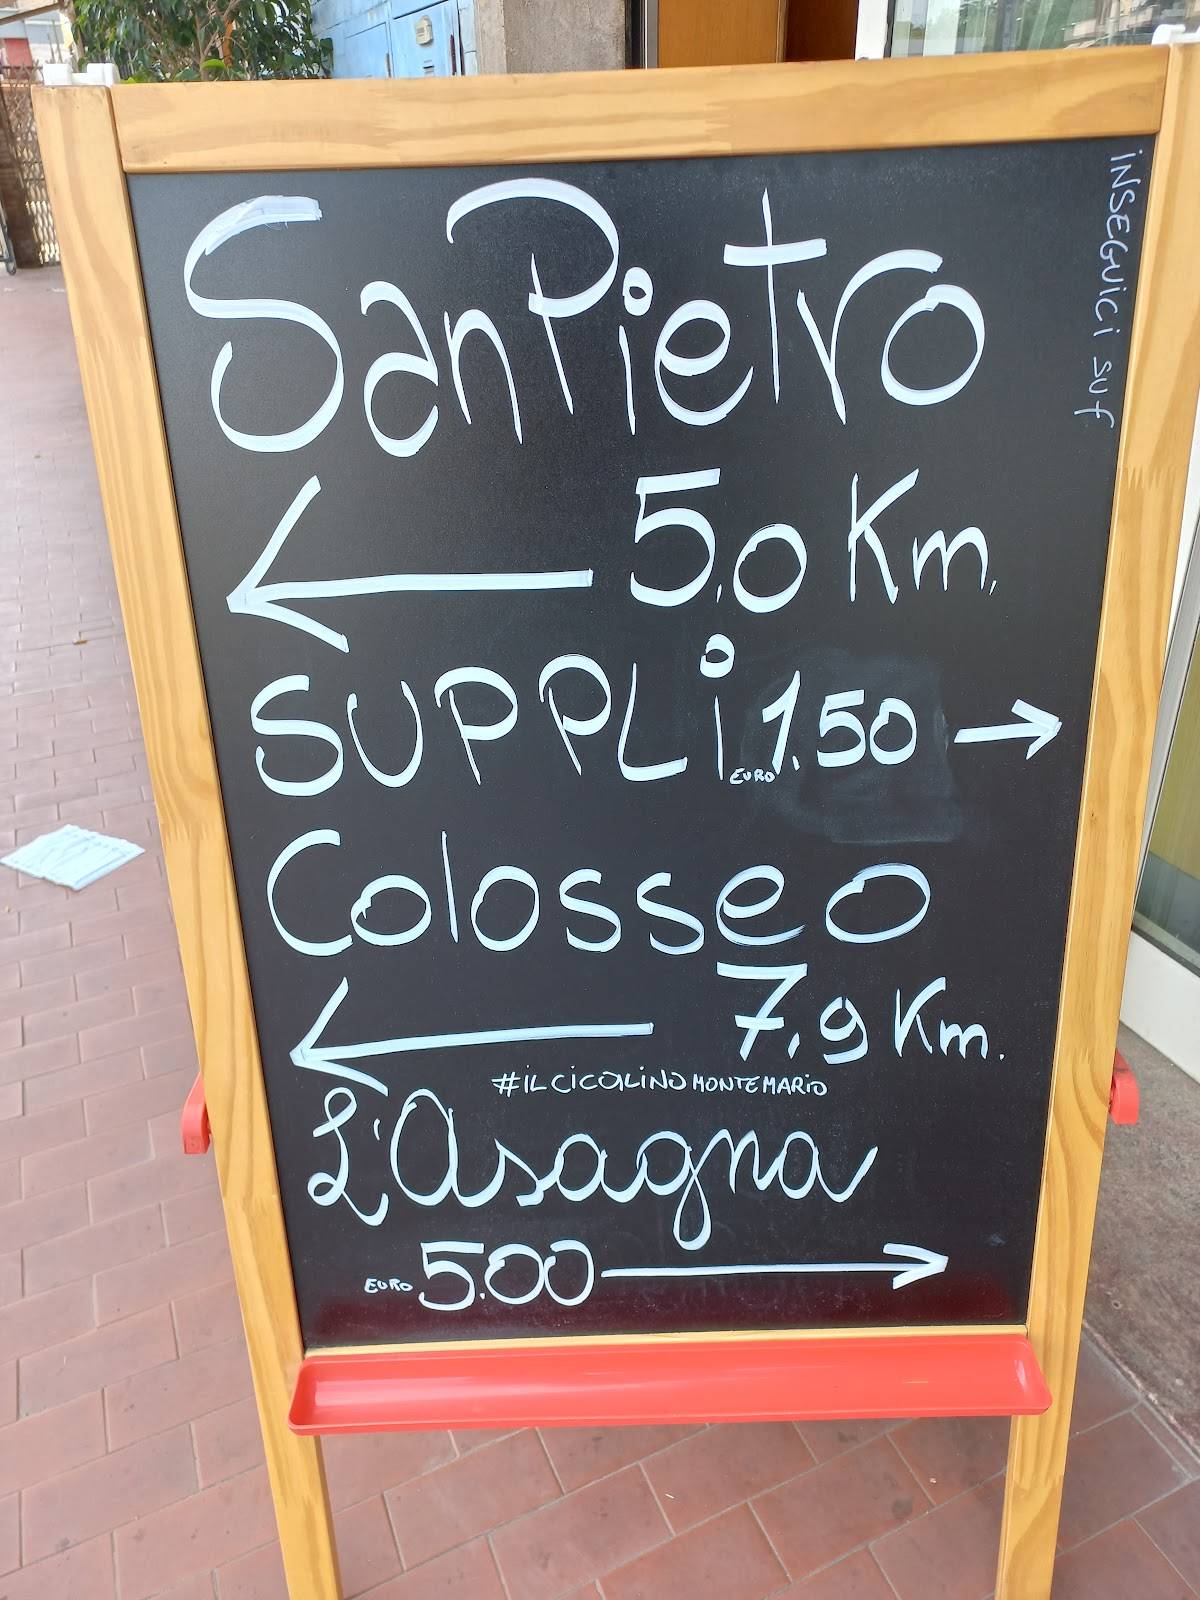 San Pietro
← 5.0 Km.
SUPPLi EURO 1.50 →
Colosseo
← 7.9 Km.
#ILCICOLINOMONTEMARIO
L'Asagna
EURO 5.00 →
iNSEGUiCi SU f